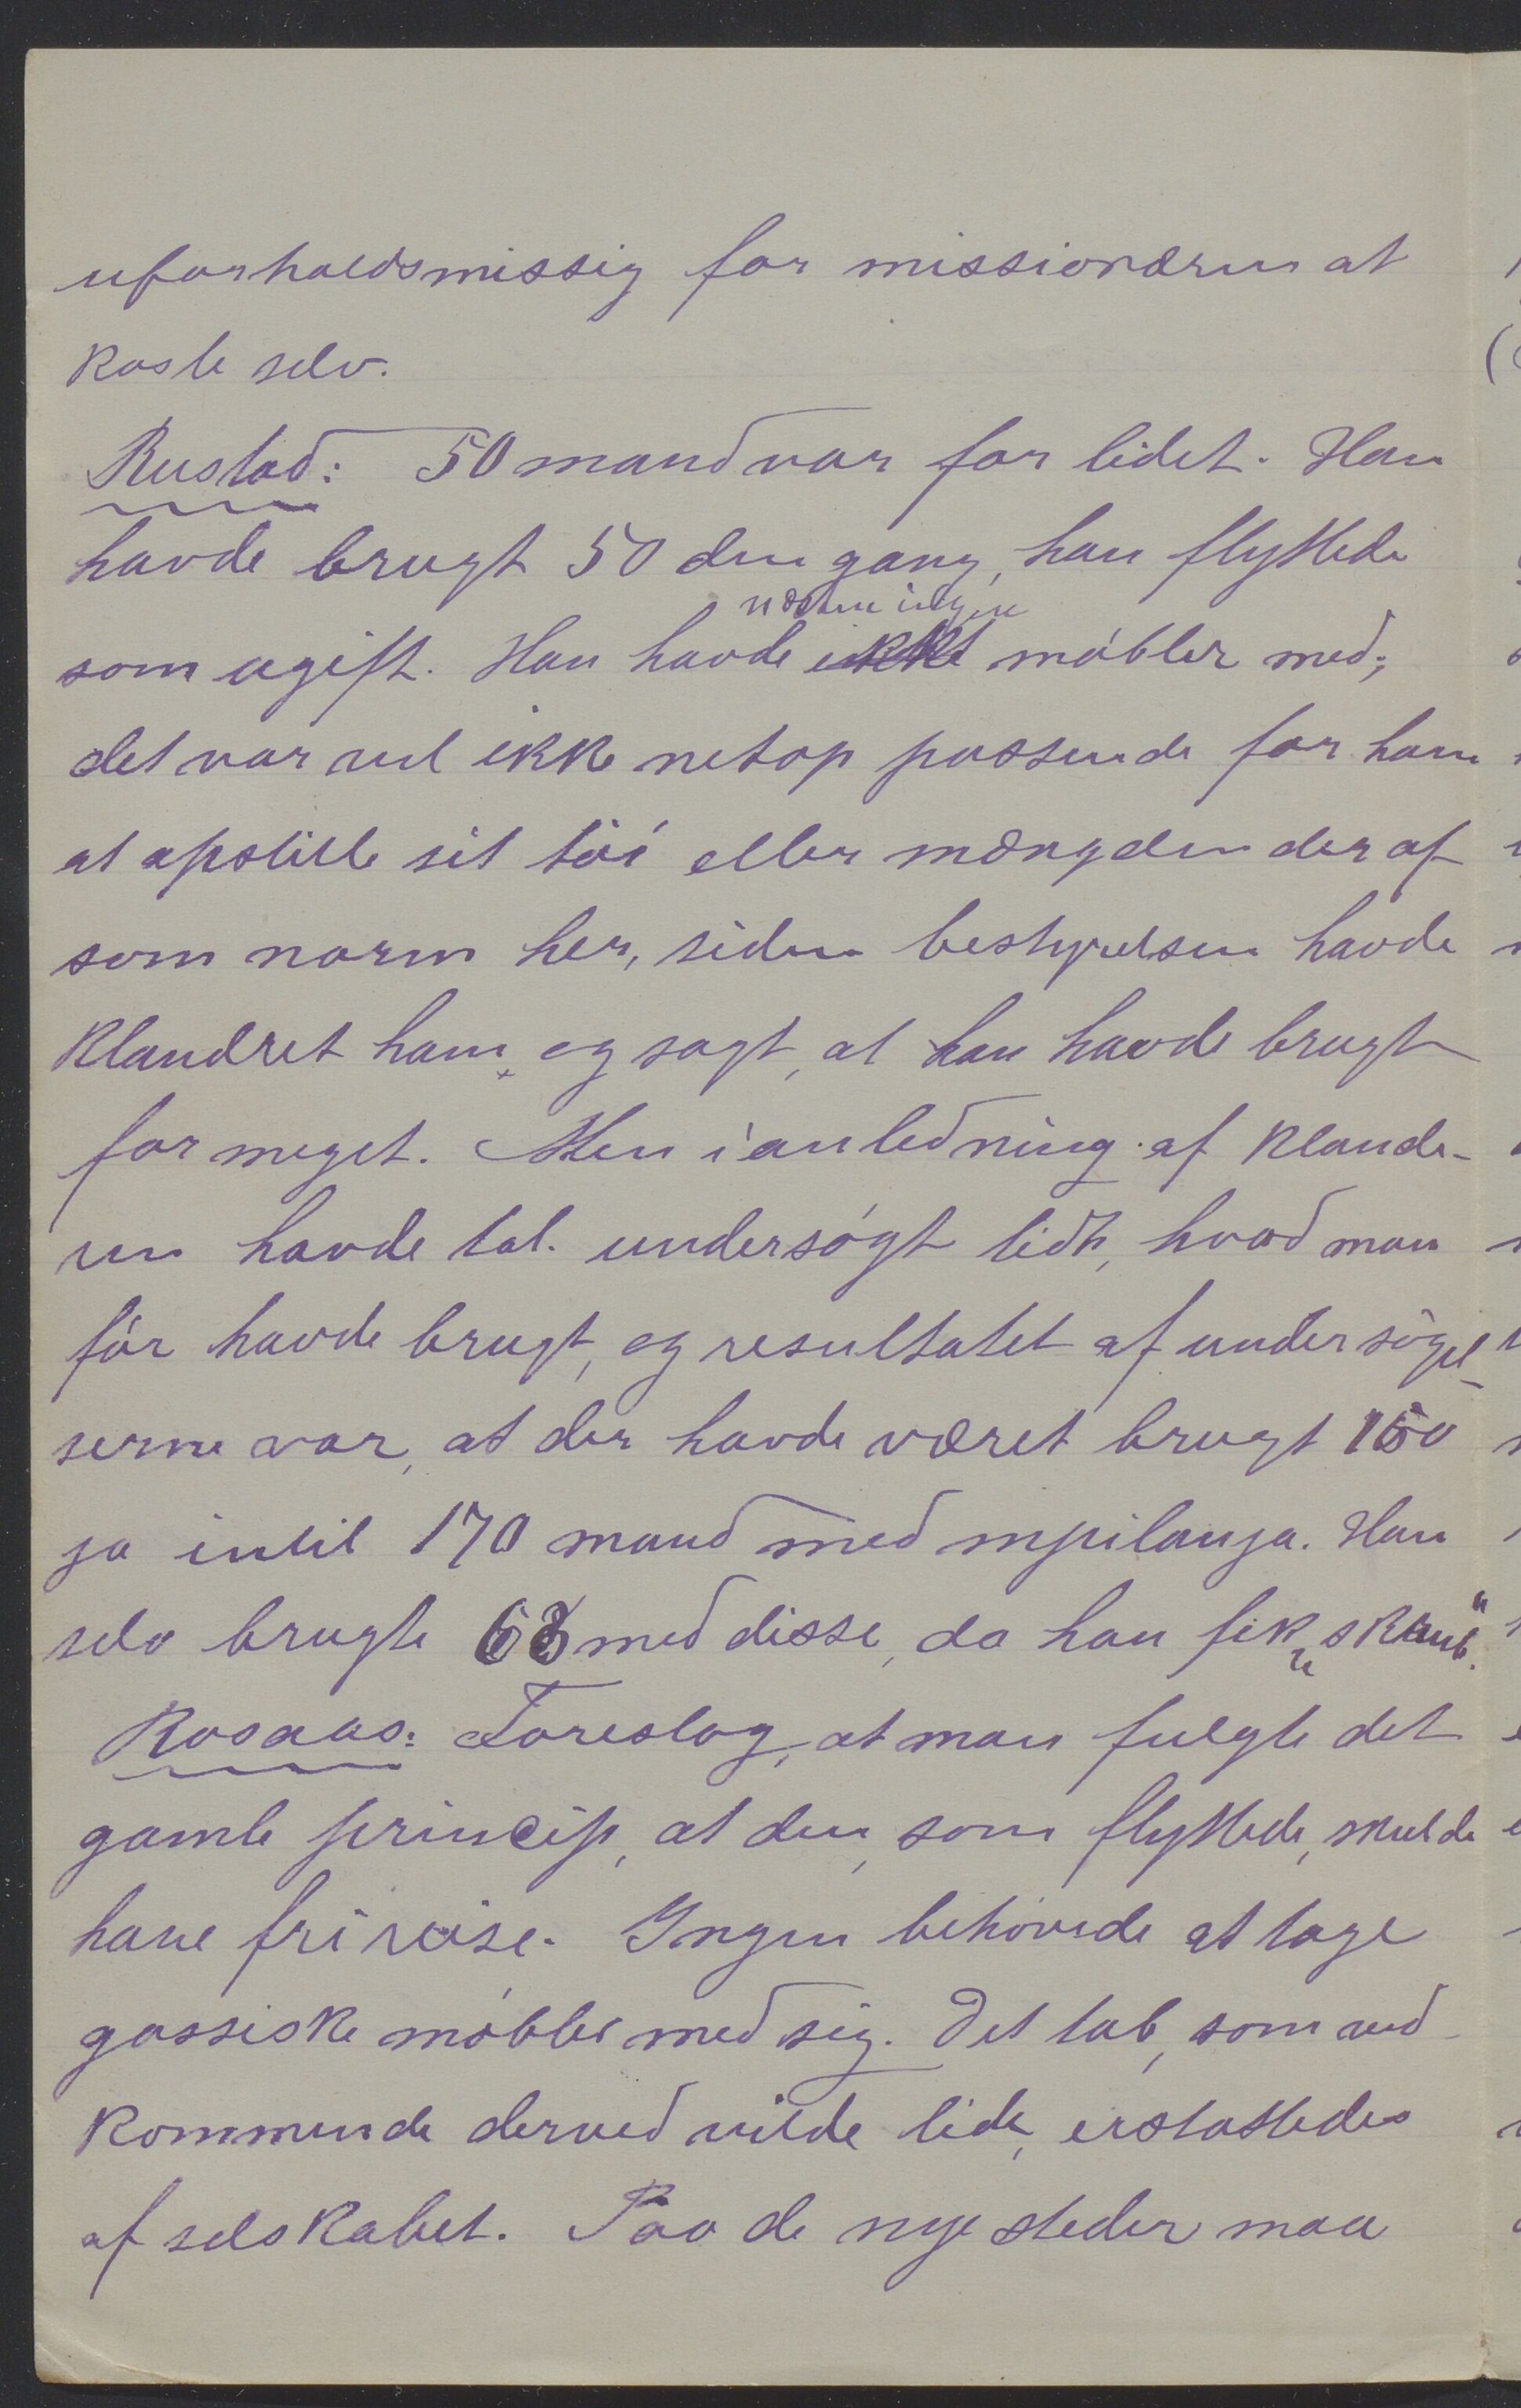 uforholdsmessig for missionæren at
koste selv.
Rustad: 50 mand var for lidet. Han
havde brugt 50 den gang, han flyttede
næsten ingen
som ugift. Han havde ikke möbler med;
det var vel ikke netop passende for ham
at opstille sit töi eller mængden deraf
som norm her, siden bestyrelsen havde
klandret ham og sagt, at han havde brugt
for meget. Men i anledning af klande-
ren havde tal. undersögt lidt, hvad man
för havde brugt, og resultatet af undersögel-
serne var, at der havde været brugt 150
ja indtil 170 mand med mpilanja. Han
selv brugte 68 med disse, da han fik „skrub“.
Rosaas: Foreslog, at man fulgte det
gamle princip, at den, som flyttede, skulde
have fri reise. Ingen behövede at tage
gassiske möbler med sig. Det tab, som ved-
kommende derved vilde lide, erstattedes
af selskabet. Paa de nye steder maa